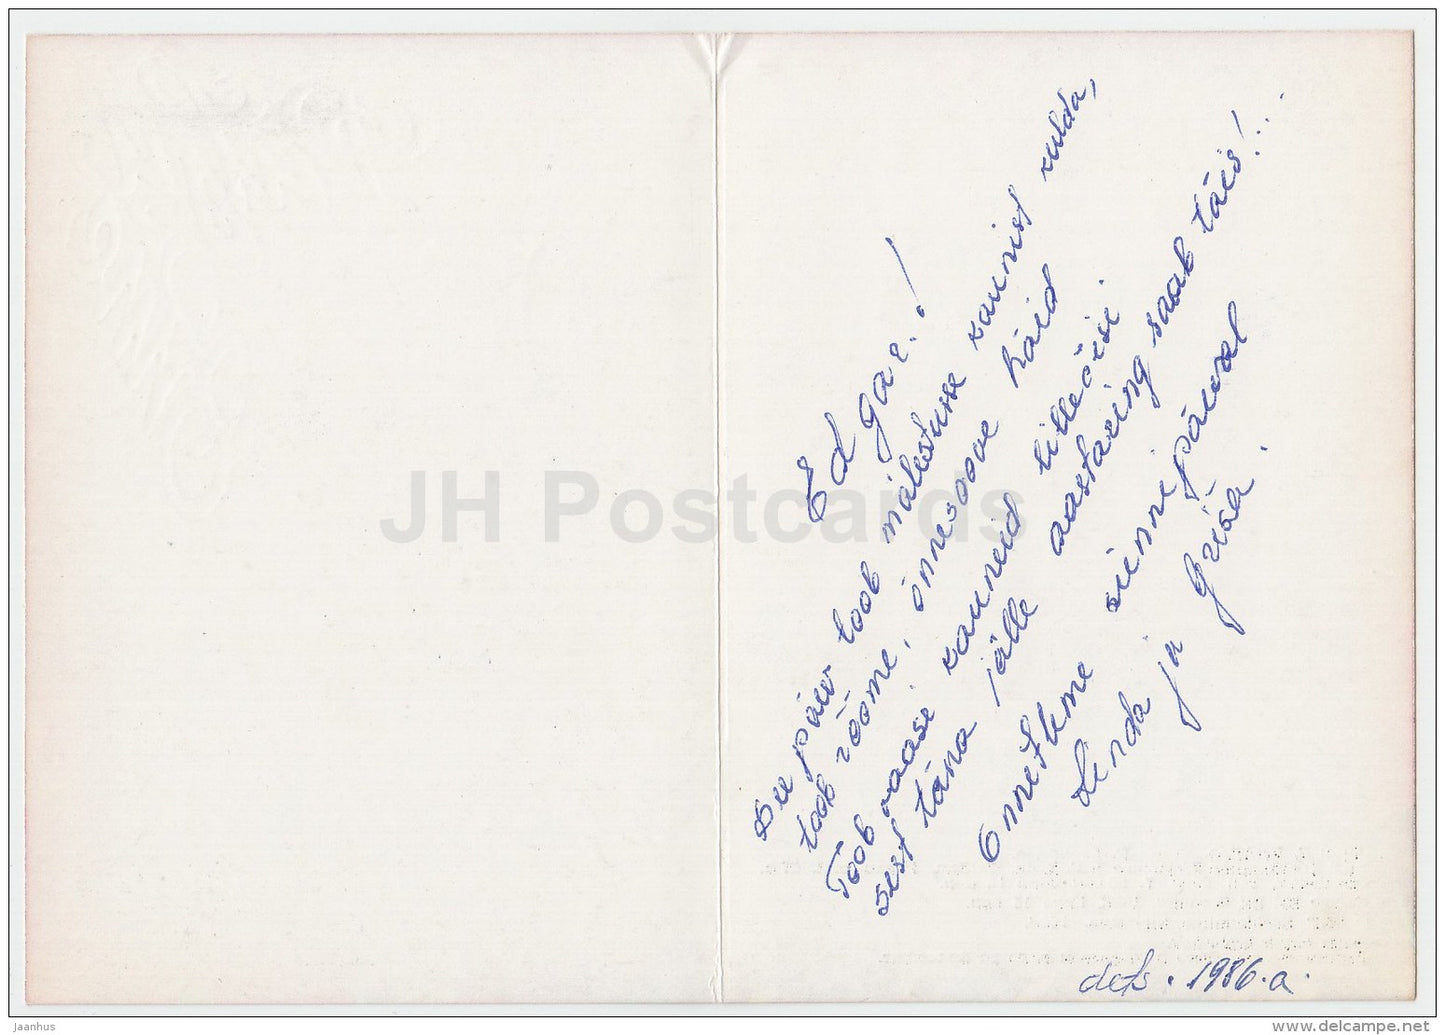 Edgar!
See päev toob mälestusse kaunist kulda,
toob rõõme, õnnesoove häid
Toob vaasi kauneid lilleõisi
sest täna jälle aastaring saab täis!...
Õnnitleme sünnipäeval
Linda ja Griša.
dets. 1986.a.
JH Postcards
jaanhus
www.delcampe.net